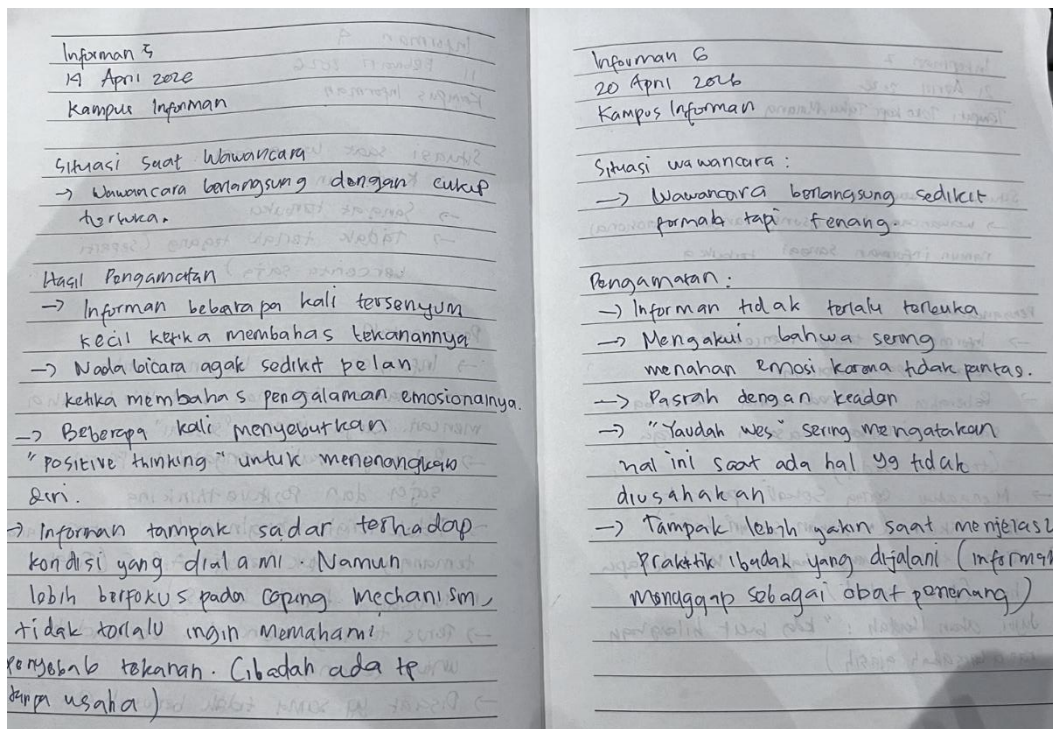 Informan 5
19 April 2026
Kampus Informan
Situasi saat Wawancara
→ Wawancara berlangsung dengan cukup
terbuka.
Hasil Pengamatan
→ Informan bebarapa kali tersenyum
kecil ketika membahas tekanannya
→ Nada bicara agak sedikit pelan
ketika membahas pengalaman emosionalnya.
→ Beberapa kali menyebutkan
"positive thinking" untuk menenangkan
diri.
→ Informan tampak sadar terhadap
kondisi yang dialami. Namun
lebih berfokus pada coping mechanism,
tidak terlalu ingin memahami
penyebab tekanan. (ibadah ada tp
tanpa usaha)
Informan 6
20 April 2026
Kampus Informan
Situasi wawancara :
→ Wawancara berlangsung sedikit
formal tapi tenang.
Pengamatan :
→ Informan tidak terlalu terbuka
→ Mengakui bahwa sering
menahan emosi karena tidak pantas.
→ Pasrah dengan keadan
→ "Yaudah wes" sering mengatakan
hal ini saat ada hal yg tidak
diusahakan
→ Tampak lebih yakin saat menjelas
praktik ibadah yang dijalani (informan
menaggap sebagai obat penenang)